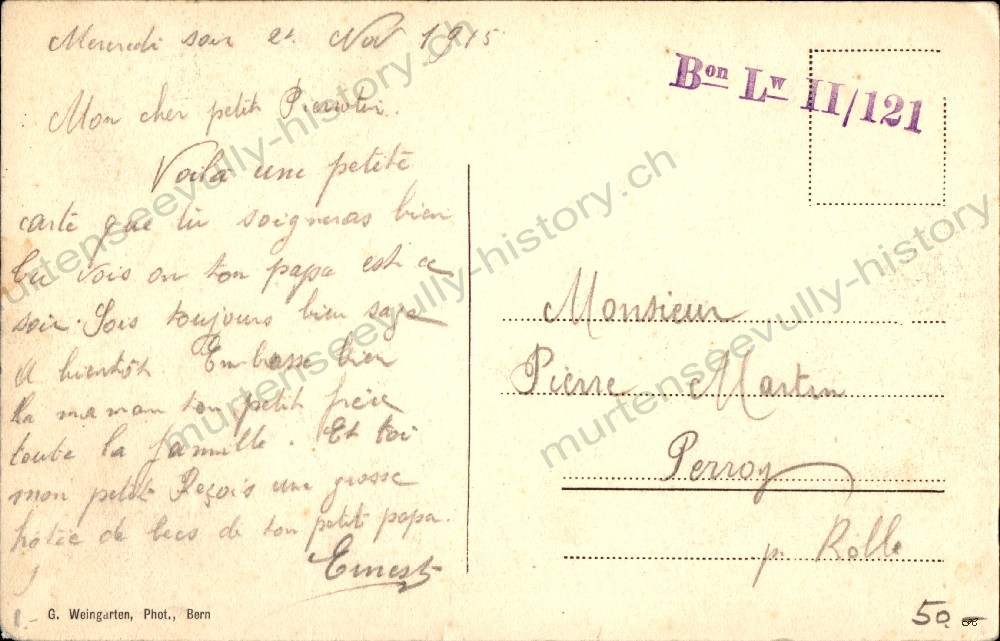 Mercredi soir 2. Nov 1915
Mon cher petit Pierrotin.
Voilà une petite
carte que tu soigneras bien
tu vois ou ton papa est ce
soir. Sois toujours bien sage
A bientôt. Embrasse bien
la maman ton petit frère
toute la famille. Et toi
mon petit Reçois une grosse
hotée de becs de ton petit papa.
Ernest
1.-
G. Weingarten, Phot., Bern
Bon Lw II/121
Monsieur
Pierre Martin
Perroy
p. Rolle
50.-
murtenseevully-history.ch
murtenseevully-history.ch
murtenseevully-history.ch